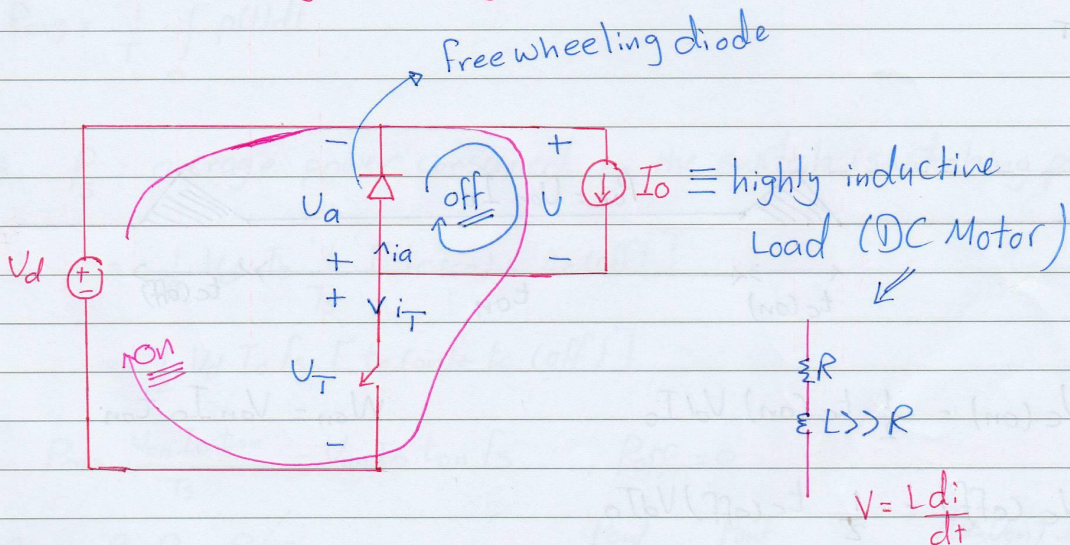 free wheeling diode
- +
off
Io ≡ highly inductive
Ua U
Load (DC Motor)
+ ia -
Vd +
iT
on
UT
R
L>>R
-
V = L di/dt